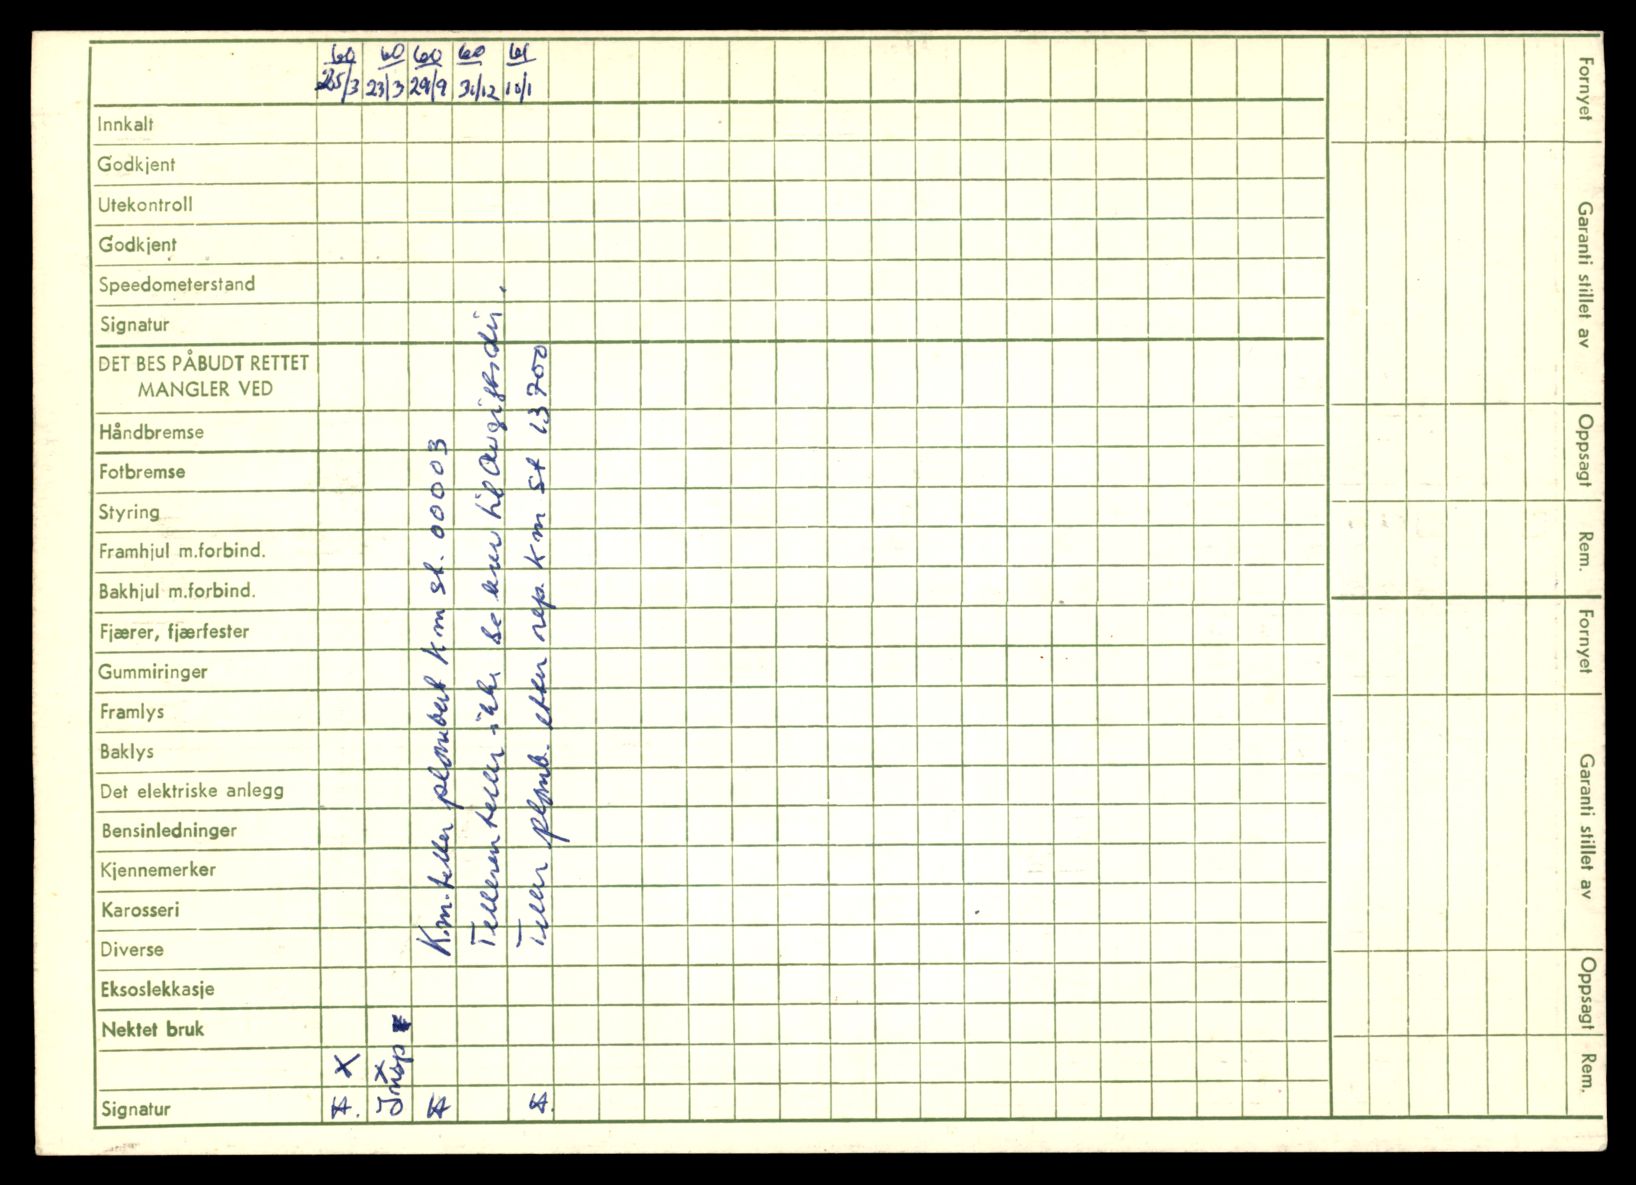 60 60 60 60 61
25/3 23/3 29/9 31/12 10/1
Innkalt
Godkjent
Utekontroll
Godkjent
Speedometerstand
Signatur
DET BES PÅBUDT RETTET
MANGLER VED
Håndbremse
Fotbremse
Styring
Framhjul m.forbind.
Bakhjul m.forbind.
Fjærer, fjærfester
Gummiringer
Framlys
Baklys
Det elektriske anlegg
Bensinledninger
Kjennemerker
Karosseri
Diverse
Eksoslekkasje
Nektet bruk
X X
Signatur
Insp
K.m.teller plombert km st. 00003
Telleren teller ikke se brev til Avgiftsdir.
Teller plomb. etter rep. km st 13700
Fornyet
Garanti stillet av
Oppsagt
Rem.
Fornyet
Garanti stillet av
Oppsagt
Rem.